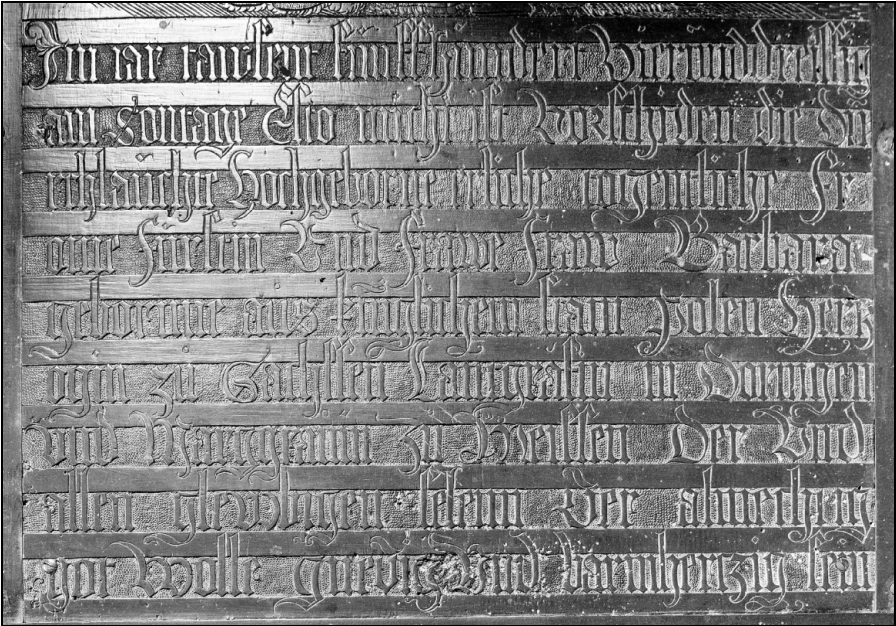 Im iar tausent funffhundert Vierunddreissig
am Sontage Esto michi ist Vorschyden die Du
rchlauchte Hochgeborne erliche togentliche Fr
ome Fürstin Vnd frawe fraw Barbara
gebornne aus koniglichem stam Polen Herz
ogin zu Sachssen Lantgrafin in Doringen
vnd Marcgrafin zu Meissen Der Vnd
allen glewbigen selenn Der almechtig
got Wolle gnedig Vnd barmhertzig sein